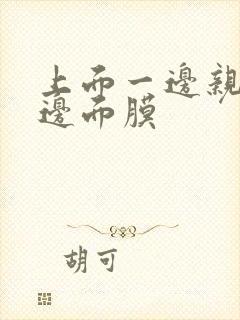 上而一邊親
邊而膜
胡可